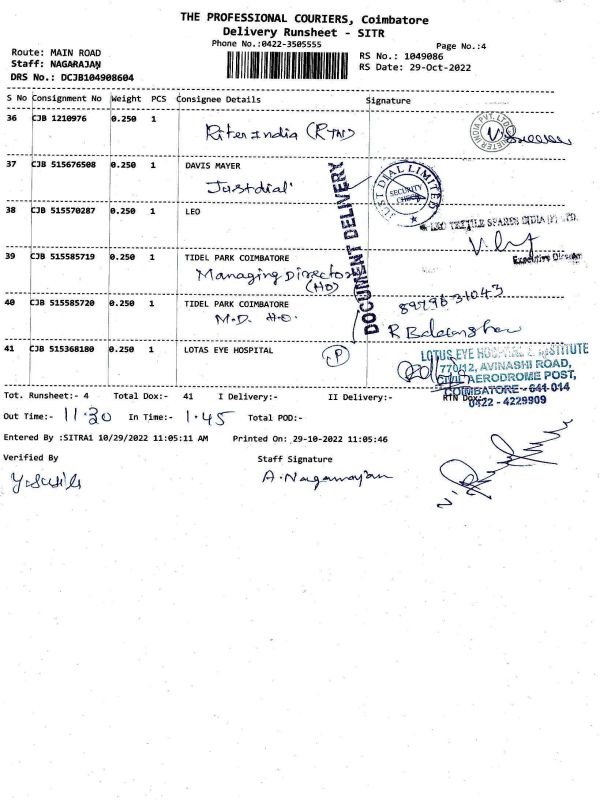 THE PROFESSIONAL COURIERS, Coimbatore
Delivery Runsheet - SITR
Phone No.:0422-3505555 Page No.:4
Route: MAIN ROAD RS No.: 1049086
Staff: NAGARAJAN RS Date: 29-Oct-2022
DRS No.: DCJB104908604
S No Consignment No Weight PCS Consignee Details Signature
36 CJB 1210976 0.250 1
Riter India (RTN)
37 CJB 515676508 0.250 1 DAVIS MAYER
Justdial
JUST DIAL LIMITED
SECURITY CHECK
DOCUMENT DELIVERY
38 CJB 515570287 0.250 1 LEO
LEO TEXTILE SPARES INDIA (P) LTD.
Executive Director
39 CJB 515585719 0.250 1 TIDEL PARK COIMBATORE
Managing Director
(HO)
40 CJB 515585720 0.250 1 TIDEL PARK COIMBATORE
M.D. H.O.
41 CJB 515368180 0.250 1 LOTAS EYE HOSPITAL
P
LOTUS EYE HOSPITAL & INSTITUTE
770/12, AVINASHI ROAD,
CIVIL AERODROME POST,
COIMBATORE - 641 014
0422 - 4229909
Tot. Runsheet:- 4 Total Dox:- 41 I Delivery:- II Delivery:- RTN Dox:-
Out Time:- 11.30 In Time:- 1.45 Total POD:-
Entered By :SITRA1 10/29/2022 11:05:11 AM Printed On: 29-10-2022 11:05:46
Verified By Staff Signature
A. Nagarajan